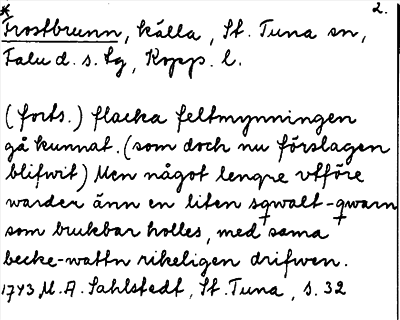 * 2.
Frostbrunn, källa, St. Tuna sn,
Falu d. s. lg, Kopp. l.
(forts.) flacka feltmynningen
gå kunnat. (som doch nu förslagen
blifwit) Men något lengre vtföre
warder änn en liten sqwalt-qwarn
som brukbar holles, med sama
becke-wattn rikeligen drifwen.
1743 M. A. Sahlstedt, St. Tuna, s. 32